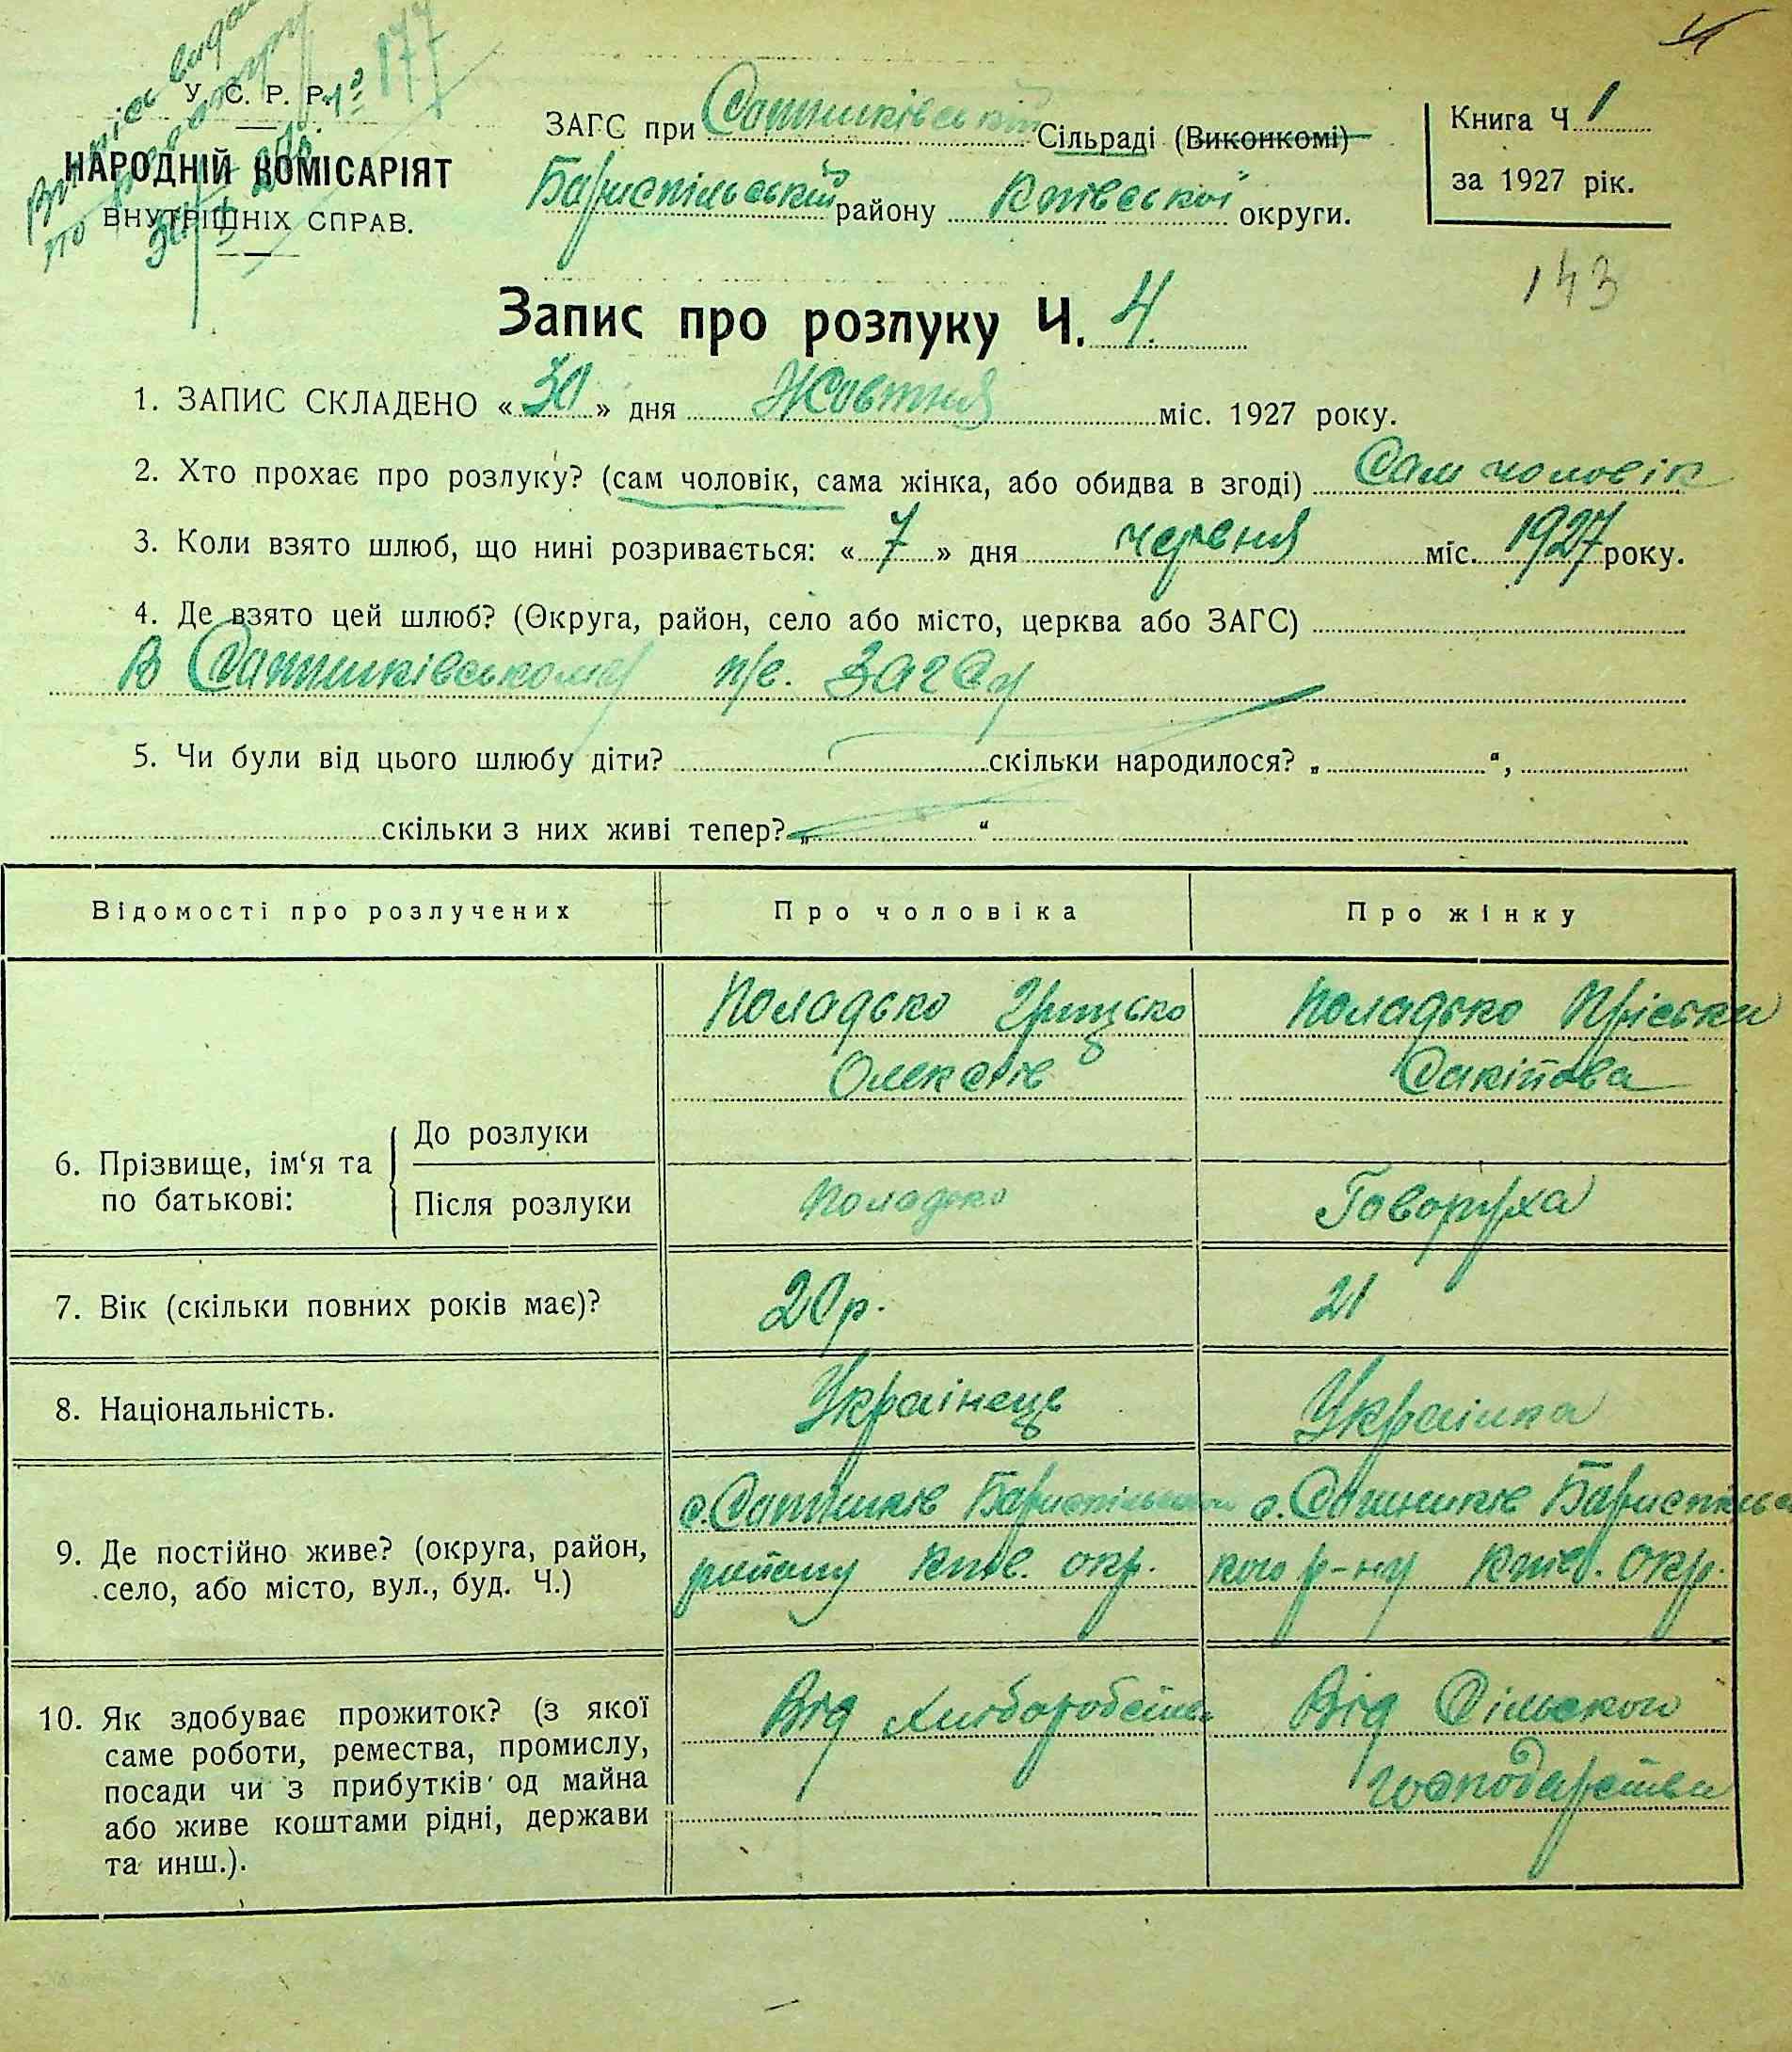 У. С. Р. Р. № 177
НАРОДНІЙ КОМІСАРІЯТ
ВНУТРІШНІХ СПРАВ.
ЗАГС при Сотниківській Сільраді (Виконкомі)
Бариспільський району Київської округи.
Книга Ч. 1
за 1927 рік.
143
Запис про розлуку Ч. 4.
1. ЗАПИС СКЛАДЕНО «30» дня Жовтня міс. 1927 року.
2. Хто прохає про розлуку? (сам чоловік, сама жінка, або обидва в згоді) Сам чоловік
3. Коли взято шлюб, що нині розривається: «7» дня червня міс. 1927 року.
4. Де взято цей шлюб? (Округа, район, село або місто, церква або ЗАГС)
В Сотниківському п/в. ЗАГСу
5. Чи були від цього шлюбу діти? скільки народилося? „ “,
скільки з них живі тепер? „ “
Відомості про розлучених Про чоловіка Про жінку
Поладько Грицько Поладько Пріська
Олексіїв
6. Прізвище, ім‘я та по батькові:
До розлуки
Після розлуки Поладько Говоруха
7. Вік (скільки повних років має)? 20 р. 21
8. Національність. Українець Українка
9. Де постійно живе? (округа, район,
село, або місто, вул., буд. Ч.)
с. Сотників Бариспільського
району Київ. окр.
с. Сотників Бариспільсь
кого р-ну Київ. окр.
10. Як здобуває прожиток? (з якої
саме роботи, ремества, промислу,
посади чи з прибутків од майна
або живе коштами рідні, держави
та инш.).
Від Хліборобства
Від Сільского
господарства